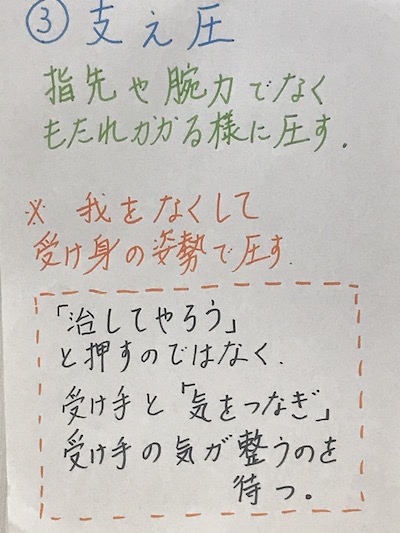 ③ 支え圧
指先や腕力でなく
もたれかかる様に圧す.
※ 我をなくして
受け身の姿勢で圧す.
「治してやろう」
と押すのではなく.
受け手と「気をつなぎ」
受け手の気が整うのを
待つ。